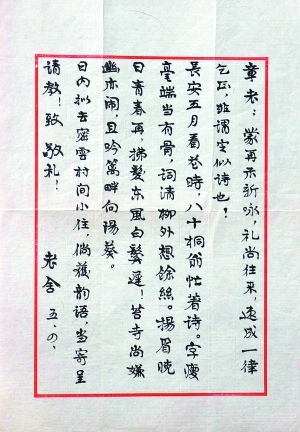 章老:蒙再示新咏,礼尚往来,速成一律
乞正,非谓定似诗也!
長安五月看花時,八十桐翁忙著诗。字瘦
毫端当有骨,词清柳外想餘絲。揚眉晓
日青春再,拂鬓东風白鬓遲!苔寺尚嫌
幽亦闹,且吟篱畔向陽葵。
日内拟去密雲村间小住,倘獲韵语,当寄呈
请教!致敬礼!
老舍 五、の、